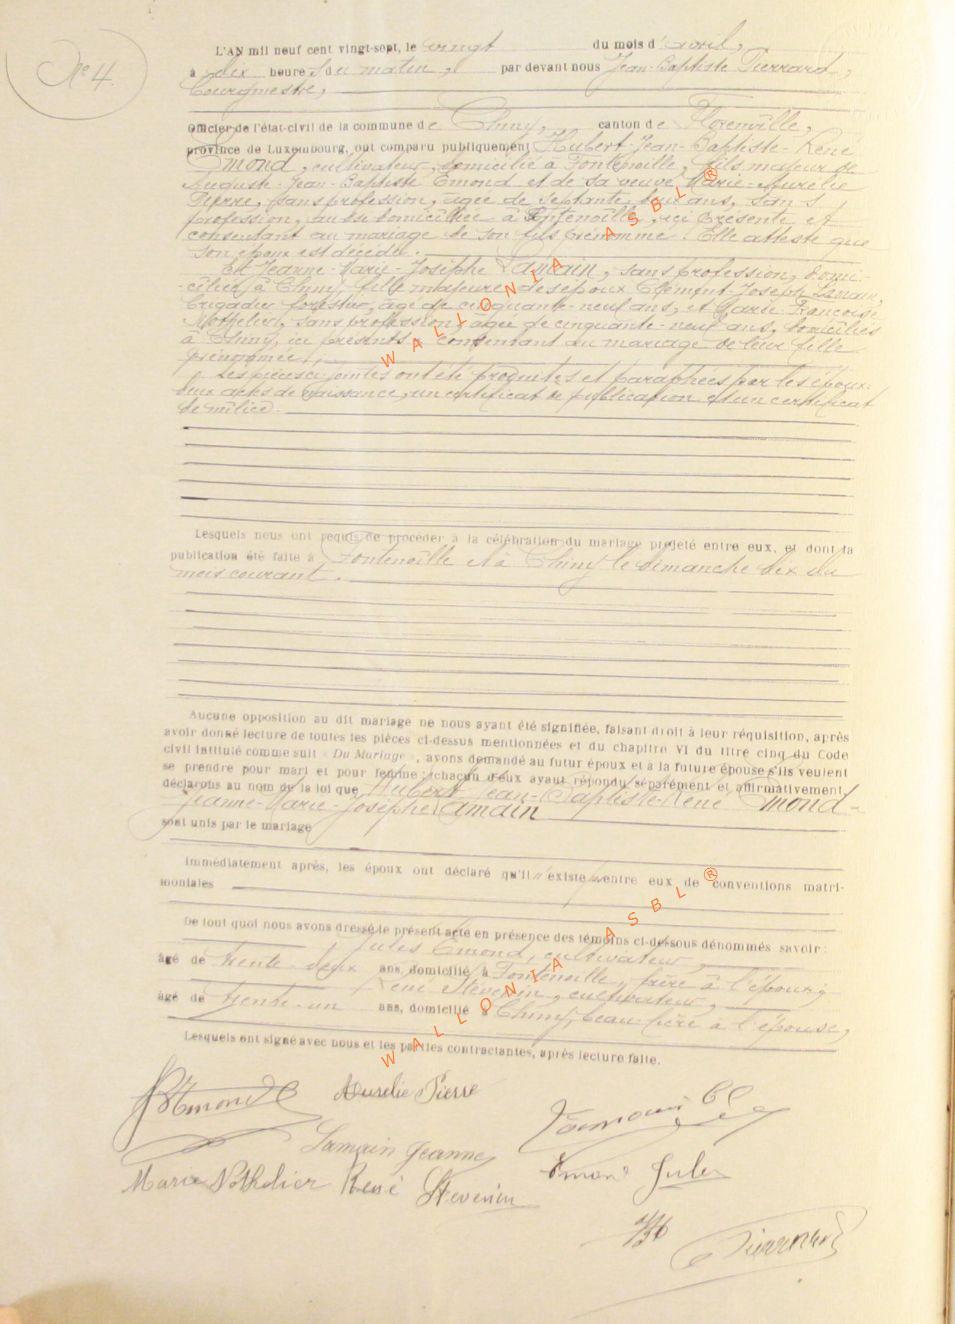 N° 4.
L'AN mil neuf cent vingt-sept, le vingt du mois d'avril,
à dix heures du matin, par devant nous Jean-Baptiste Pierrard,
bourgmestre,
Officier de l'état-civil de la commune de Chiny, canton de Florenville,
province de Luxembourg, ont comparu publiquement Hubert-Jean-Baptiste-René
Emond, cultivateur, domicilié à Fontenoille, fils majeur de
Auguste-Jean-Baptiste Emond et de sa veuve Marie-Aurélie
Pierre, sans profession, âgée de septante deux ans, sans
profession, aussi domiciliée à Fontenoille, ici présente et
consentant au mariage de son fils prénommé. Elle atteste que
son époux est décédé.
Et Jeanne-Marie-Josèphe Lamain, sans profession, domi-
ciliée à Chiny, fille majeure des époux Clément Joseph Lamain,
brigadier forestier, âgé de cinquante-neuf ans, et Marie Françoise
Nothelier, sans profession, âgée de cinquante-neuf ans, domiciliés
à Chiny, ici présents & consentant au mariage de leur fille
prénommée.
Les pièces ci-jointes ont été produites et paraphées par les époux:
deux actes de naissance, un certificat de publication et un certificat
de milice.
Lesquels nous ont requis de procéder à la célébration du mariage projeté entre eux, et dont la
publication été faite à Fontenoille et à Chiny le dimanche dix du
mois courant.
Aucune opposition au dit mariage ne nous ayant été signifiée, faisant droit à leur réquisition, après
avoir donné lecture de toutes les pièces ci-dessus mentionnées et du chapitre VI du titre cinq du Code
civil intitulé comme suit « Du Mariage », avons demandé au futur époux et à la future épouse s'ils veulent
se prendre pour mari et pour femme; chacun d'eux ayant répondu séparément et affirmativement,
déclarons au nom de la loi que Hubert-Jean-Baptiste-René Emond &
Jeanne-Marie-Josèphe Lamain
sont unis par le mariage
Immédiatement après, les époux ont déclaré qu'il n'existe pas entre eux de conventions matri-
moniales
De tout quoi nous avons dressé le présent acte en présence des témoins ci-dessous dénommés savoir:
Jules Emond, cultivateur,
âgé de trente deux ans, domicilié à Fontenoille, frère à l'époux;
René Stévenin, cultivateur,
âgé de trente-un ans, domicilié à Chiny, beau-frère à l'épouse,
Lesquels ont signé avec nous et les parties contractantes, après lecture faite.
Aurelie Pierre
Lamain Jeanne
Emond Jules
Marie Nothelier René Stevenin
Pierrard
WALLONIA ASBL ®
WALLONIA ASBL ®